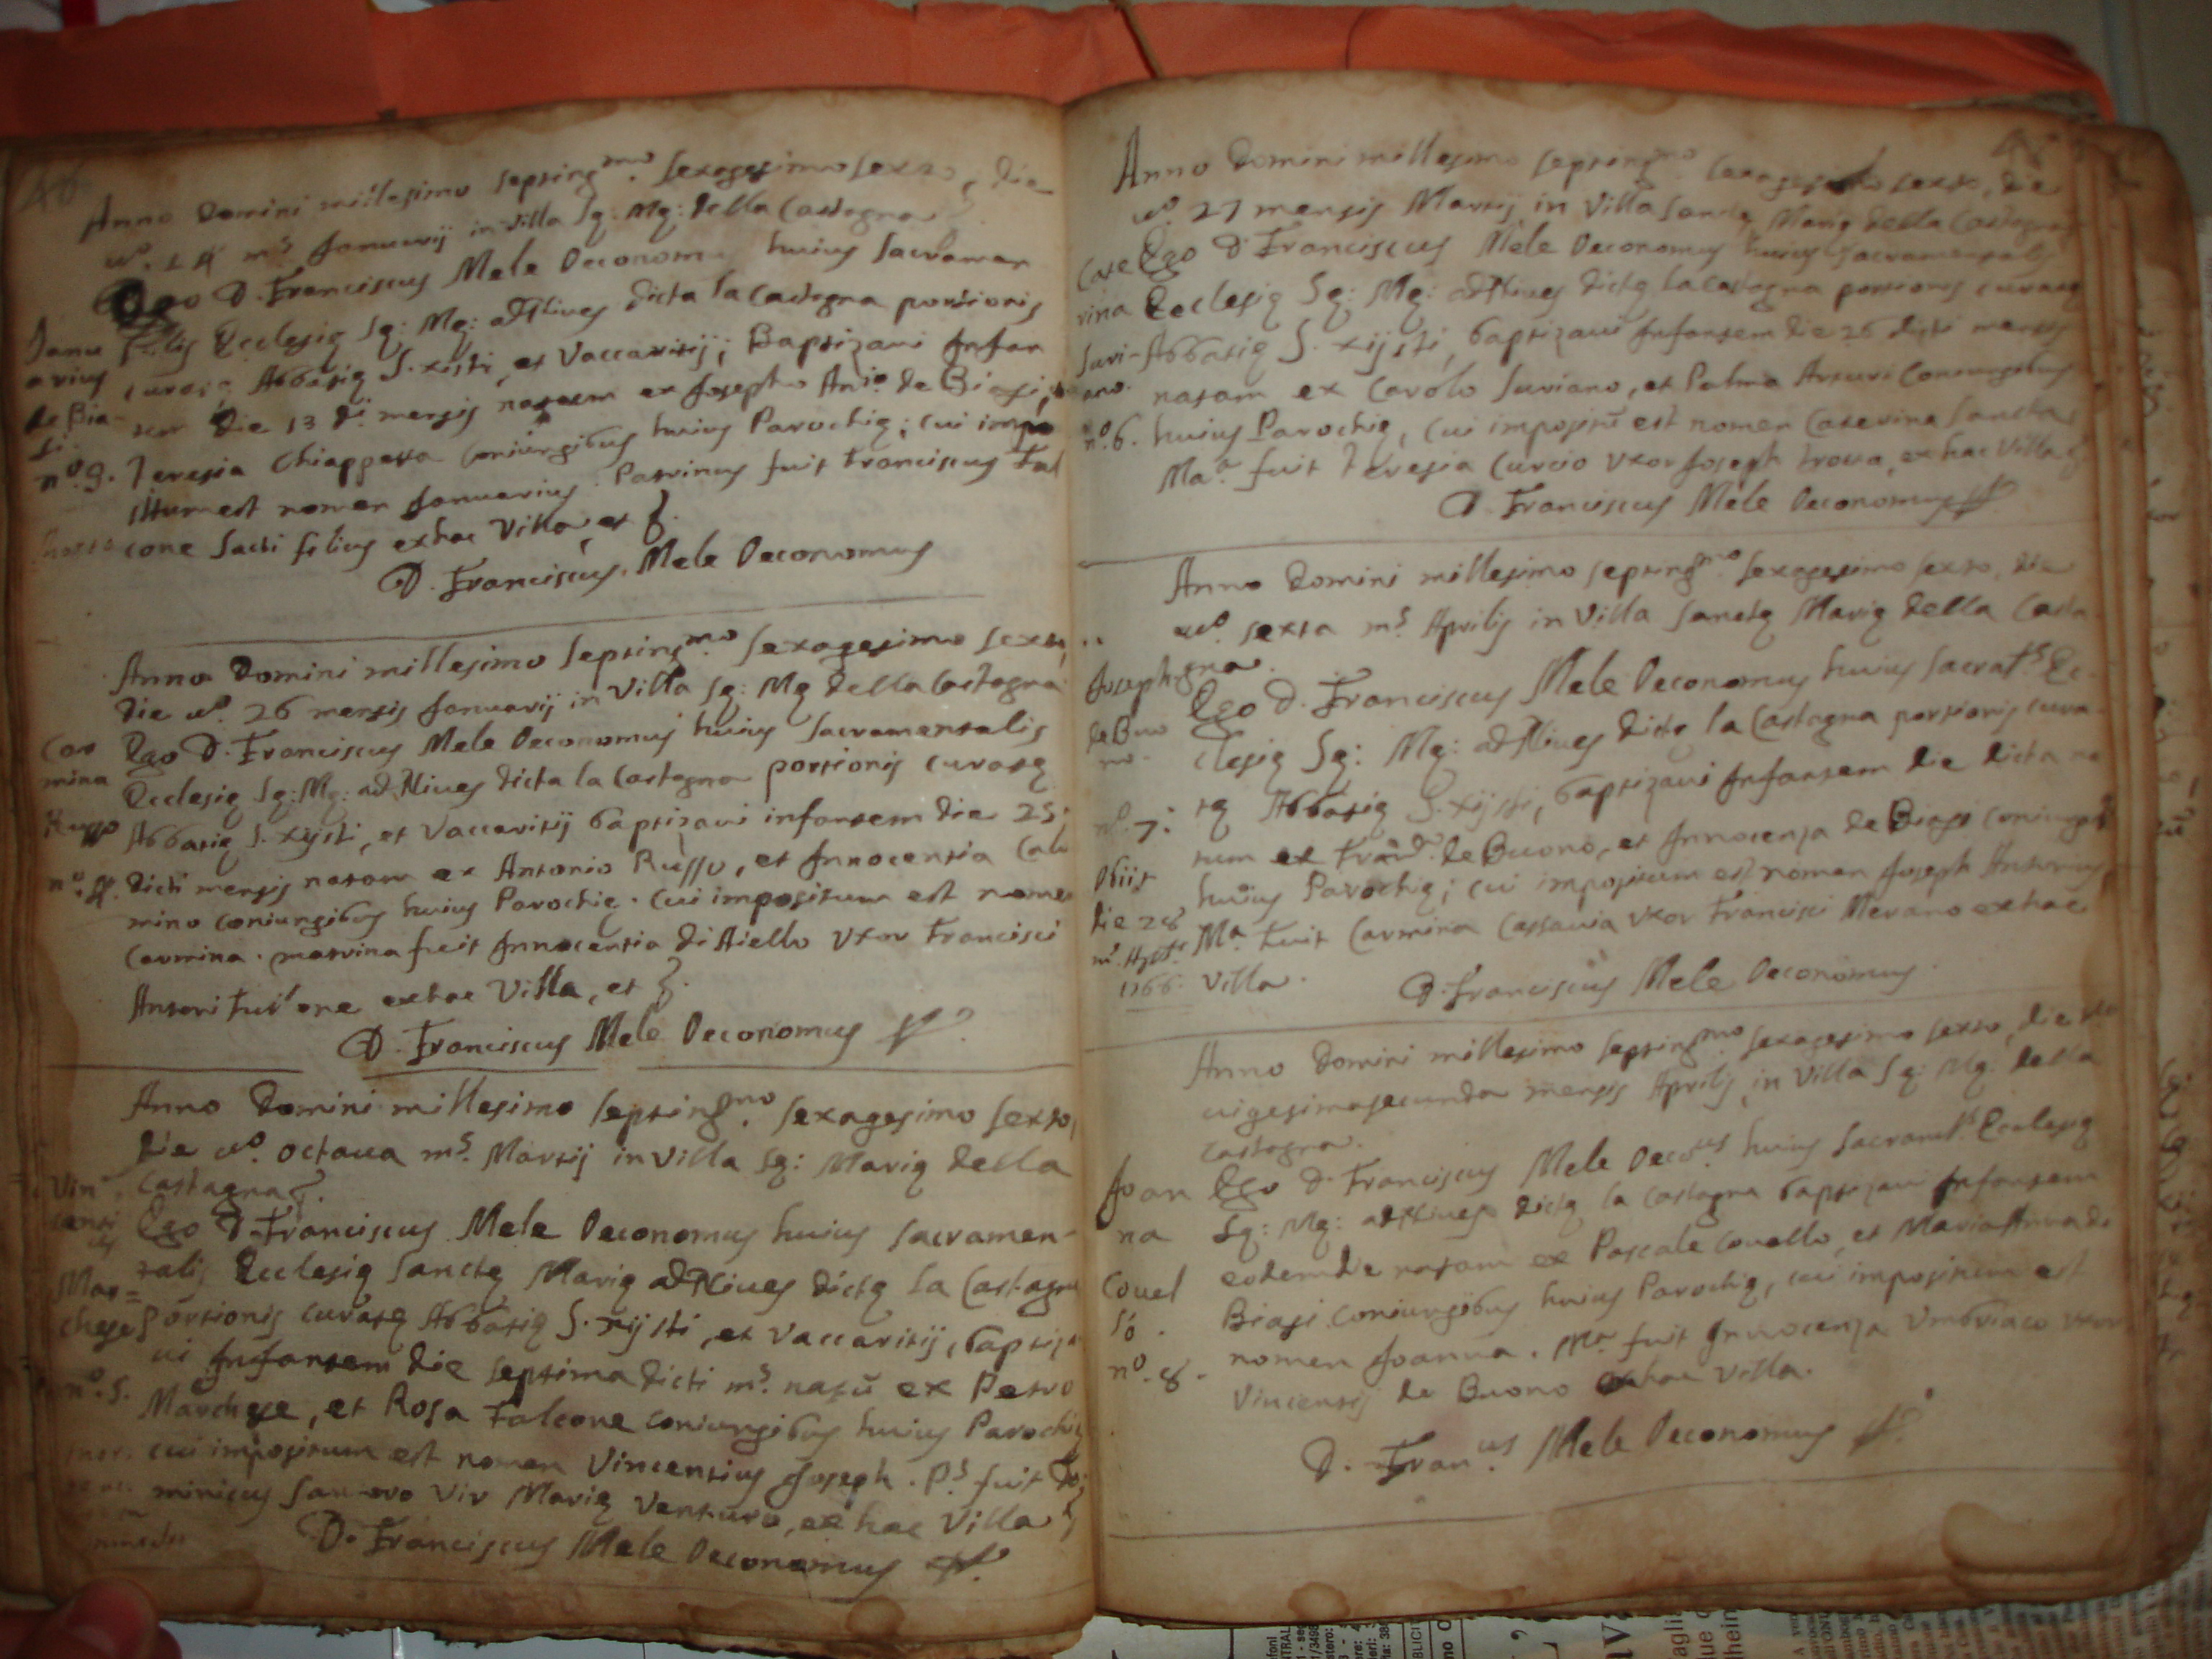 46
Anno Domini millesimo septing.mo sexagesimo sexto, die
vo. 14 ms. Januarij in Villa Sę: Mę: della Castagna
Ego D. Franciscus Mele Oeconomus huius Sacramen
talis Ecclesię Sę: Mę: ad Nives dicta la Castagna portionis
curatę Abbatię S. Xisti, et Vaccaritij; Baptizavi Infan
tem die 13 di. mensis natum ex Josepho Anio. de Biasi, et
Teresia Chiappetta coniungibus huius Parochię; cui impo
situm est nomen Januarius. Patrinus fuit Franciscus Fal
cone Sacti filius ex hac Villa, et
D. Franciscus Mele Oeconomus
Janu
arius
de Bia-
si.
no. 3.
Anno Domini millesimo septing.mo sexagesimo sexto,
die vo. 26 mensis Januarij in Villa Sę: Mę della Castagna
Ego D. Franciscus Mele Oeconomus huius Sacramentalis
Ecclesię Sę: Mę: ad Nives dicta la Castagna portionis curatę
Abbatię S. Xysti, et Vaccaritij baptizavi infantem die 25
dicti mensis natam ex Antonio Russo, et Innocentia Calo
mino coniungibus huius Parochię. Cui impositum est nomen
Carmina. matrina fuit Innocentia di Aiello Uxor Francisci
Antoni ex hac Villa, et
D. Franciscus Mele Oeconomus
Car
mina
Russo
no. 4.
Anno Domini millesimo septing.mo sexagesimo sexto,
die vo. octava ms. Martij in Villa Sę: Marię della
Castagna
Ego D. Franciscus Mele Oeconomus huius Sacramen-
talis Ecclesię Sanctę Marię ad Nives dictę la Castagna
Portionis curatę Abbatię S. Xijsti, et Vaccaritij, baptiza
vi Infantem die septima dicti ms. natū ex Petro
Marchese, et Rosa Falcone coniungibus huius Parochię
cui impositum est nomen Vincentius Joseph. Ps. fuit Do
minicus Santoro Vir Marię Ventura, ex hac Villa
D. Franciscus Mele Oeconomus
Vin
centi
us
Mar=
chese
no. 5.
Anno Domini millesimo septing.mo sexagesimo sexto, die
vo. 27 mensis Martij in Villa Sanctę Marię della Castagna
Ego D. Franciscus Mele Oeconomus huius Sacramentalis
Ecclesię Sę: Mę: ad Nives dictę la Castagna portionis curatę
Abbatię S. Xijsti, baptizavi Infantem die 26 dicti mensis
natam ex Carolo Suriano, et Palma Arturi Coniungibus
huius Parochię, cui impositū est nomen Caterina Sancta
Ma. fuit Teresia Curcio Uxor Joseph Trotta, ex hac Villa
D. Franciscus Mele Oeconomus
Cate
rina
Suri-
ano.
no. 6.
Anno Domini millesimo septing.mo sexagesimo sexto, die
vo. sexta ms. Aprilis in Villa Sanctę Marię della Casta
gna.
Ego D. Franciscus Mele Oeconomus huius Sacratls Ec-
clesię Sę: Mę: ad Nives dictę la Castagna portionis cura
tę Abbatię S. Xijsti, baptizavi Infantem die dicta na
tum ex de Buono, et Innocenza de Biasi coniungibus
huius Parochię; cui impositum est nomen Joseph Antonius
Ma. Fuit Carmina Cassavia Uxor Francisci Merano ex hac
Villa.
D. Franciscus Mele Oeconomus
Joseph
de Buo
no.
no. 7.
Obiit
die 28
1766.
Anno Domini millesimo septing.mo sexagesimo sexto, die vo
vigesima secunda mensis Aprilis, in Villa Sę: Mę: della
Castagna.
Ego D. Franciscus Mele Oeco.us huius Sacramt.s Ecclesię
Sę: Mę: ad Nives dictę la Castagna baptizavi Infantem
eodem die natam ex Pascale Covello, et Maria Anna de
Biasi coniungibus huius Parochię, cui impositum est
nomen Joanna. Ma. fuit Innocenza Umbriaco Uxor
Vincentij de Buono ex hac Villa.
D. Fran.us Mele Oeconomus
Joan
na
Covel
lo.
no. 8.